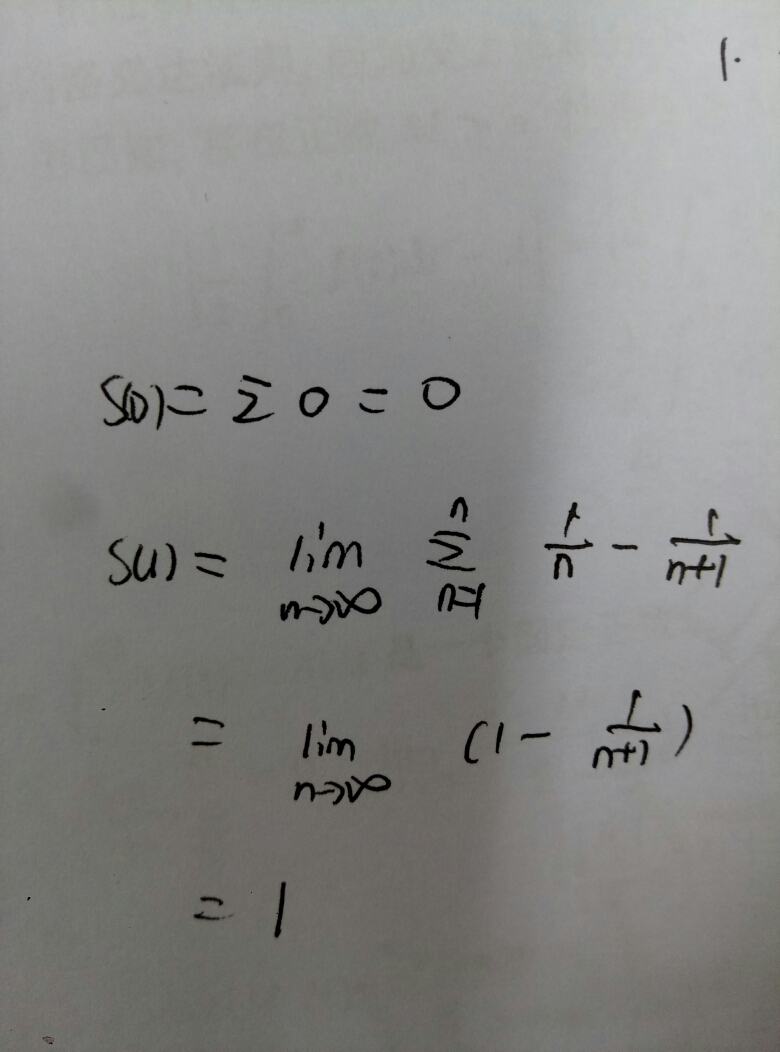 1.
S(0) = Σ 0 = 0
S(1) = lim_{n→∞} Σ_{n=1}^{n} 1/n - 1/(n+1)
= lim_{n→∞} (1 - 1/(n+1))
= 1